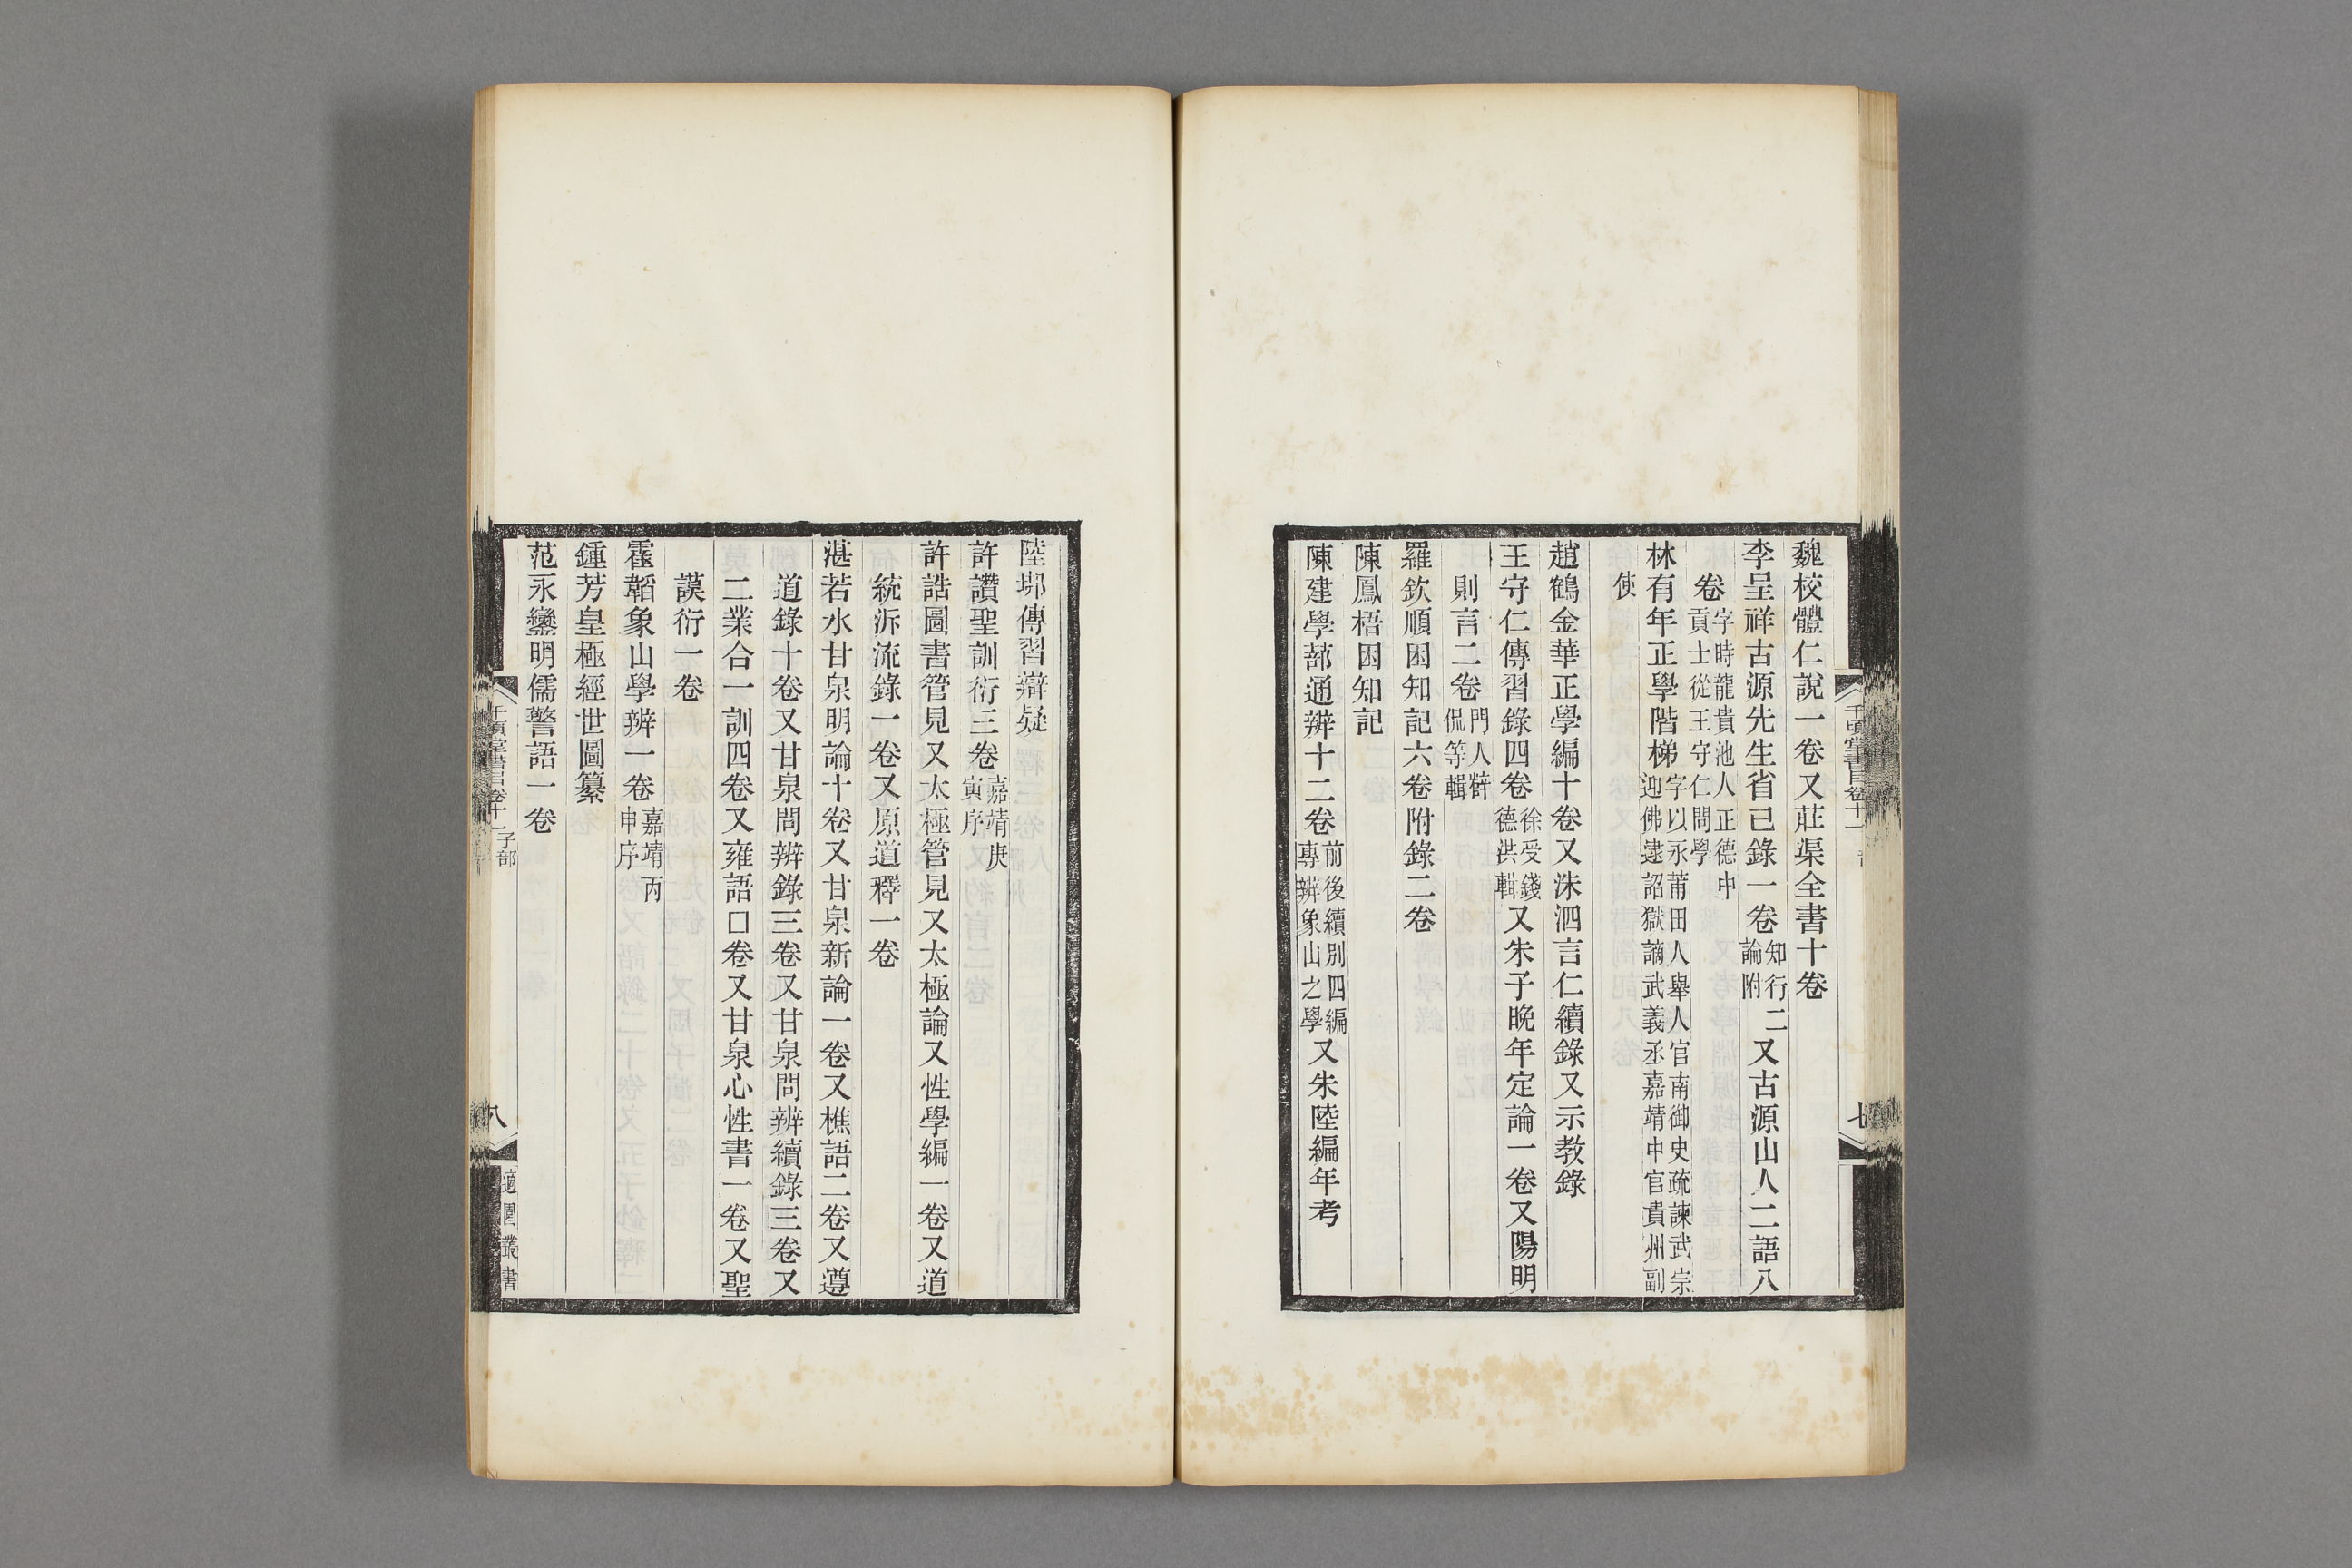 魏校體仁說一卷又莊渠全書十卷
李呈祥古源先生省己錄一卷知行二論附又古源山人二語八
卷字時龍貴池人正德中貢士從王守仁問學
林有年正學階梯字以永莆田人舉人官南御史疏諫武宗迎佛逮詔獄謫武義丞嘉靖中官貴州副
使
趙鶴金華正學編十卷又洙泗言仁續錄又示教錄
王守仁傳習錄四卷徐受錢德洪輯又朱子晚年定論一卷又陽明
則言二卷門人薛侃等輯
羅欽順困知記六卷附錄二卷
陳鳳梧困知記
陳建學蔀通辨十二卷前後續別四編專辨象山之學又朱陸編年考
千頃堂書目卷十一
七
陸邦傳習辯疑
許讚聖訓衍三卷嘉靖庚寅序
許誥圖書管見又太極管見又太極論又性學編一卷又道
統泝流錄一卷又原道釋一卷
湛若水甘泉明論十卷又甘泉新論一卷又樵語二卷又遵
道錄十卷又甘泉問辨錄三卷又甘泉問辨續錄三卷又
二業合一訓四卷又雍語口卷又甘泉心性書一卷又聖
謨衍一卷
霍韜象山學辨一卷嘉靖丙申序
鍾芳皇極經世圖纂
范永鑾明儒警語一卷
千頃堂書目卷十一 子部
八
適園叢書